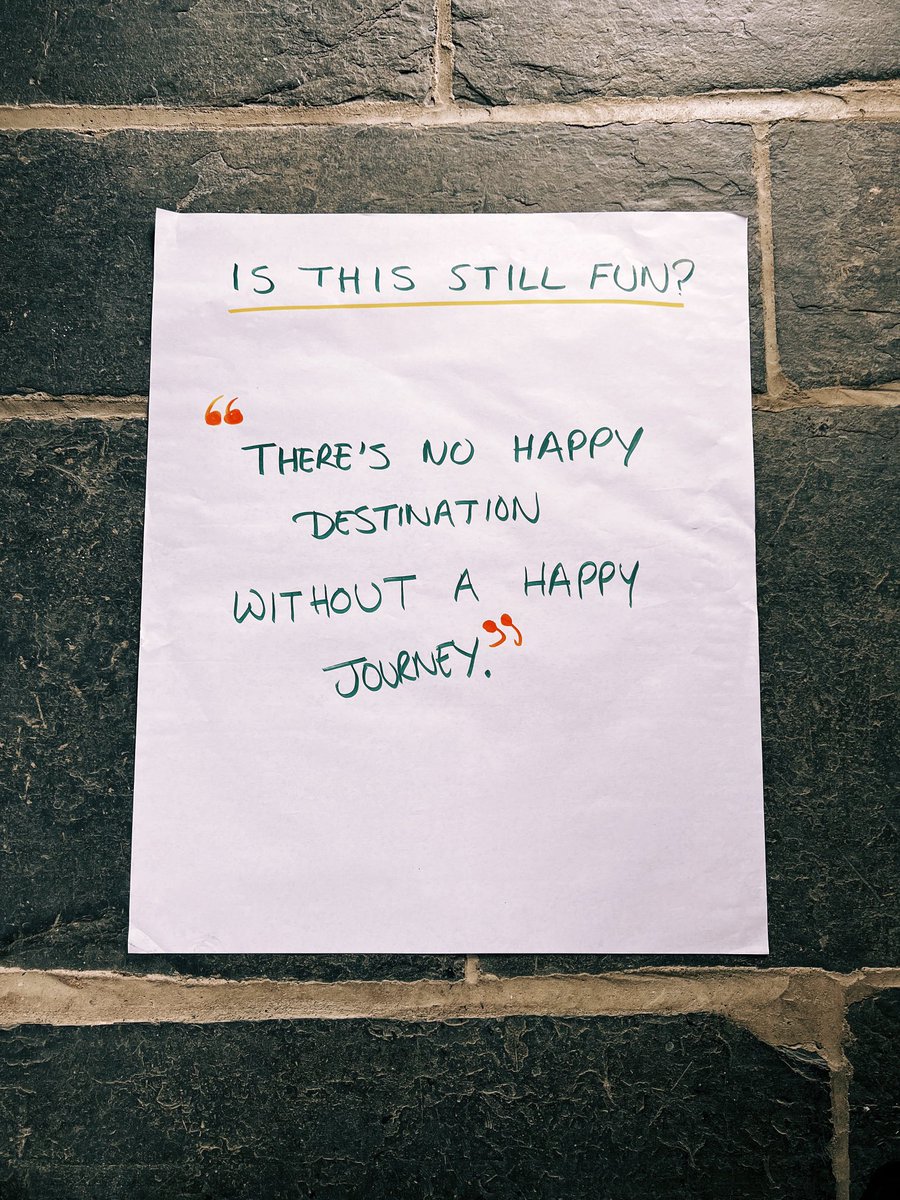 IS THIS STILL FUN?
“THERE'S NO HAPPY
DESTINATION
WITHOUT A HAPPY
JOURNEY.”